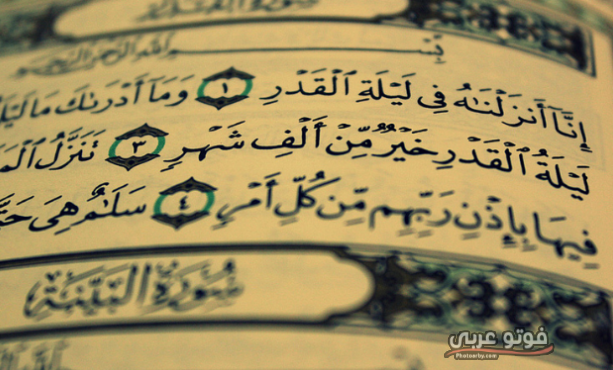 سُورَةُ
بِسْمِ ٱللَّهِ ٱلرَّحْمَٰنِ ٱلرَّحِيمِ
إِنَّآ أَنزَلْنَٰهُ فِى لَيْلَةِ ٱلْقَدْرِ ١ وَمَآ أَدْرَىٰكَ مَا
لَيْلَةُ ٱلْقَدْرِ خَيْرٌ مِّنْ أَلْفِ شَهْرٍ ٣ تَنَزَّلُ
فِيهَا بِإِذْنِ رَبِّهِم مِّن كُلِّ أَمْرٍ ٤ سَلَٰمٌ هِىَ
سُورَةُ البَيِّنَةِ
فوتو عربي
Photoarby.com